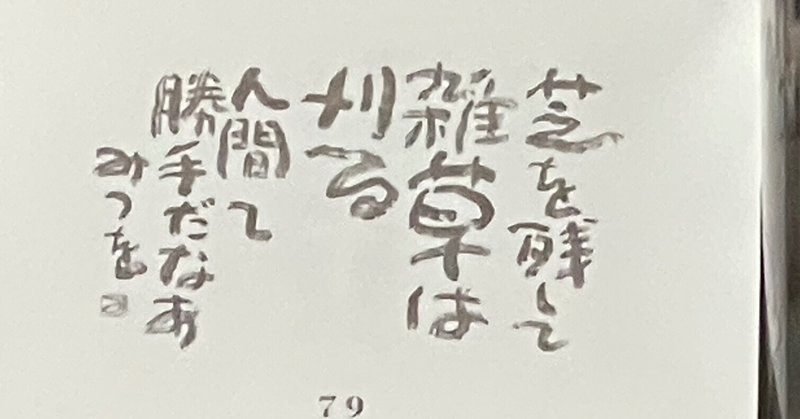 芝を残して
雑草は
刈る
人間て
勝手だなあ
みつを
79